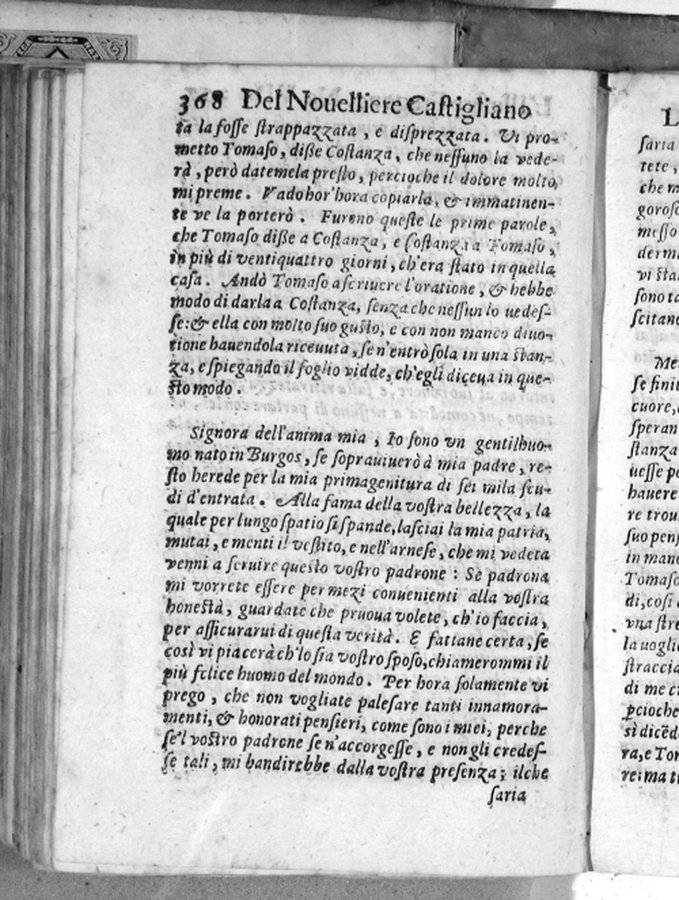 368 Del Nouelliere Castigliano
ta la fosse strappazzata, e disprezzata. Vi pro-
metto Tomaso, diße Costanza, che nessuno la vede-
rà, però datemela presto, percioche il dolore molto
mi preme. Vado hor'hora copiarla, & immatinen-
te ve la porterò. Fureno queste le prime parole,
che Tomaso diße a Costanza, e Costanza a Tomaso,
in più di ventiquattro giorni, ch'era stato in quella
casa. Andò Tomaso a scriuere l'oratione, & hebbe
modo di darla a Costanza, senza che nessun lo uedes-
se: & ella con molto suo gusto, e con non manco diuo-
tione hauendola riceuuta, se n'entrò sola in una stan-
za, e spiegando il foglio vidde, ch'egli diceua in que-
sto modo.
Signora dell'anima mia, Io sono vn gentilhuo-
mo nato in Burgos, se sopraviuerò à mia padre, re-
sto herede per la mia primagenitura di sei mila scu-
di d'entrata. Alla fama della vostra bellezza, la
quale per lungo spatio si spande, lasciai la mia patria,
mutai, e menti il vestito, e nell'arnese, che mi vedeta
venni a seruire questo vostro padrone: Se padrona
mi vorrete essere per mezi conuenienti alla vostra
honestà, guardate che pruoua volete, ch'io faccia,
per assicurarui di questa verità. E fattane certa, se
così vi piacerà ch'Io sia vostro sposo, chiamerommi il
più felice huomo del mondo. Per hora solamente vi
prego, che non vogliate palesare tanti innamora-
menti, & honorati pensieri, come sono i miei, perche
se'l vostro padrone se n'accorgesse, e non gli credes-
se tali, mi bandirebbe dalla vostra presenza; ilche
saria
L
saria
tete,
che m
goroso
messo
der mi
vi sta
sono ta
scitano
Me
se finit
cuore,
speran
stanza
uesse po
hauere
re trou
suo pens
in mano
Tomaso
di, così
vna stre
la uoglio
straccia
di me ci
pcioche
sì dicẽd
ra, e Tom
re: ma t